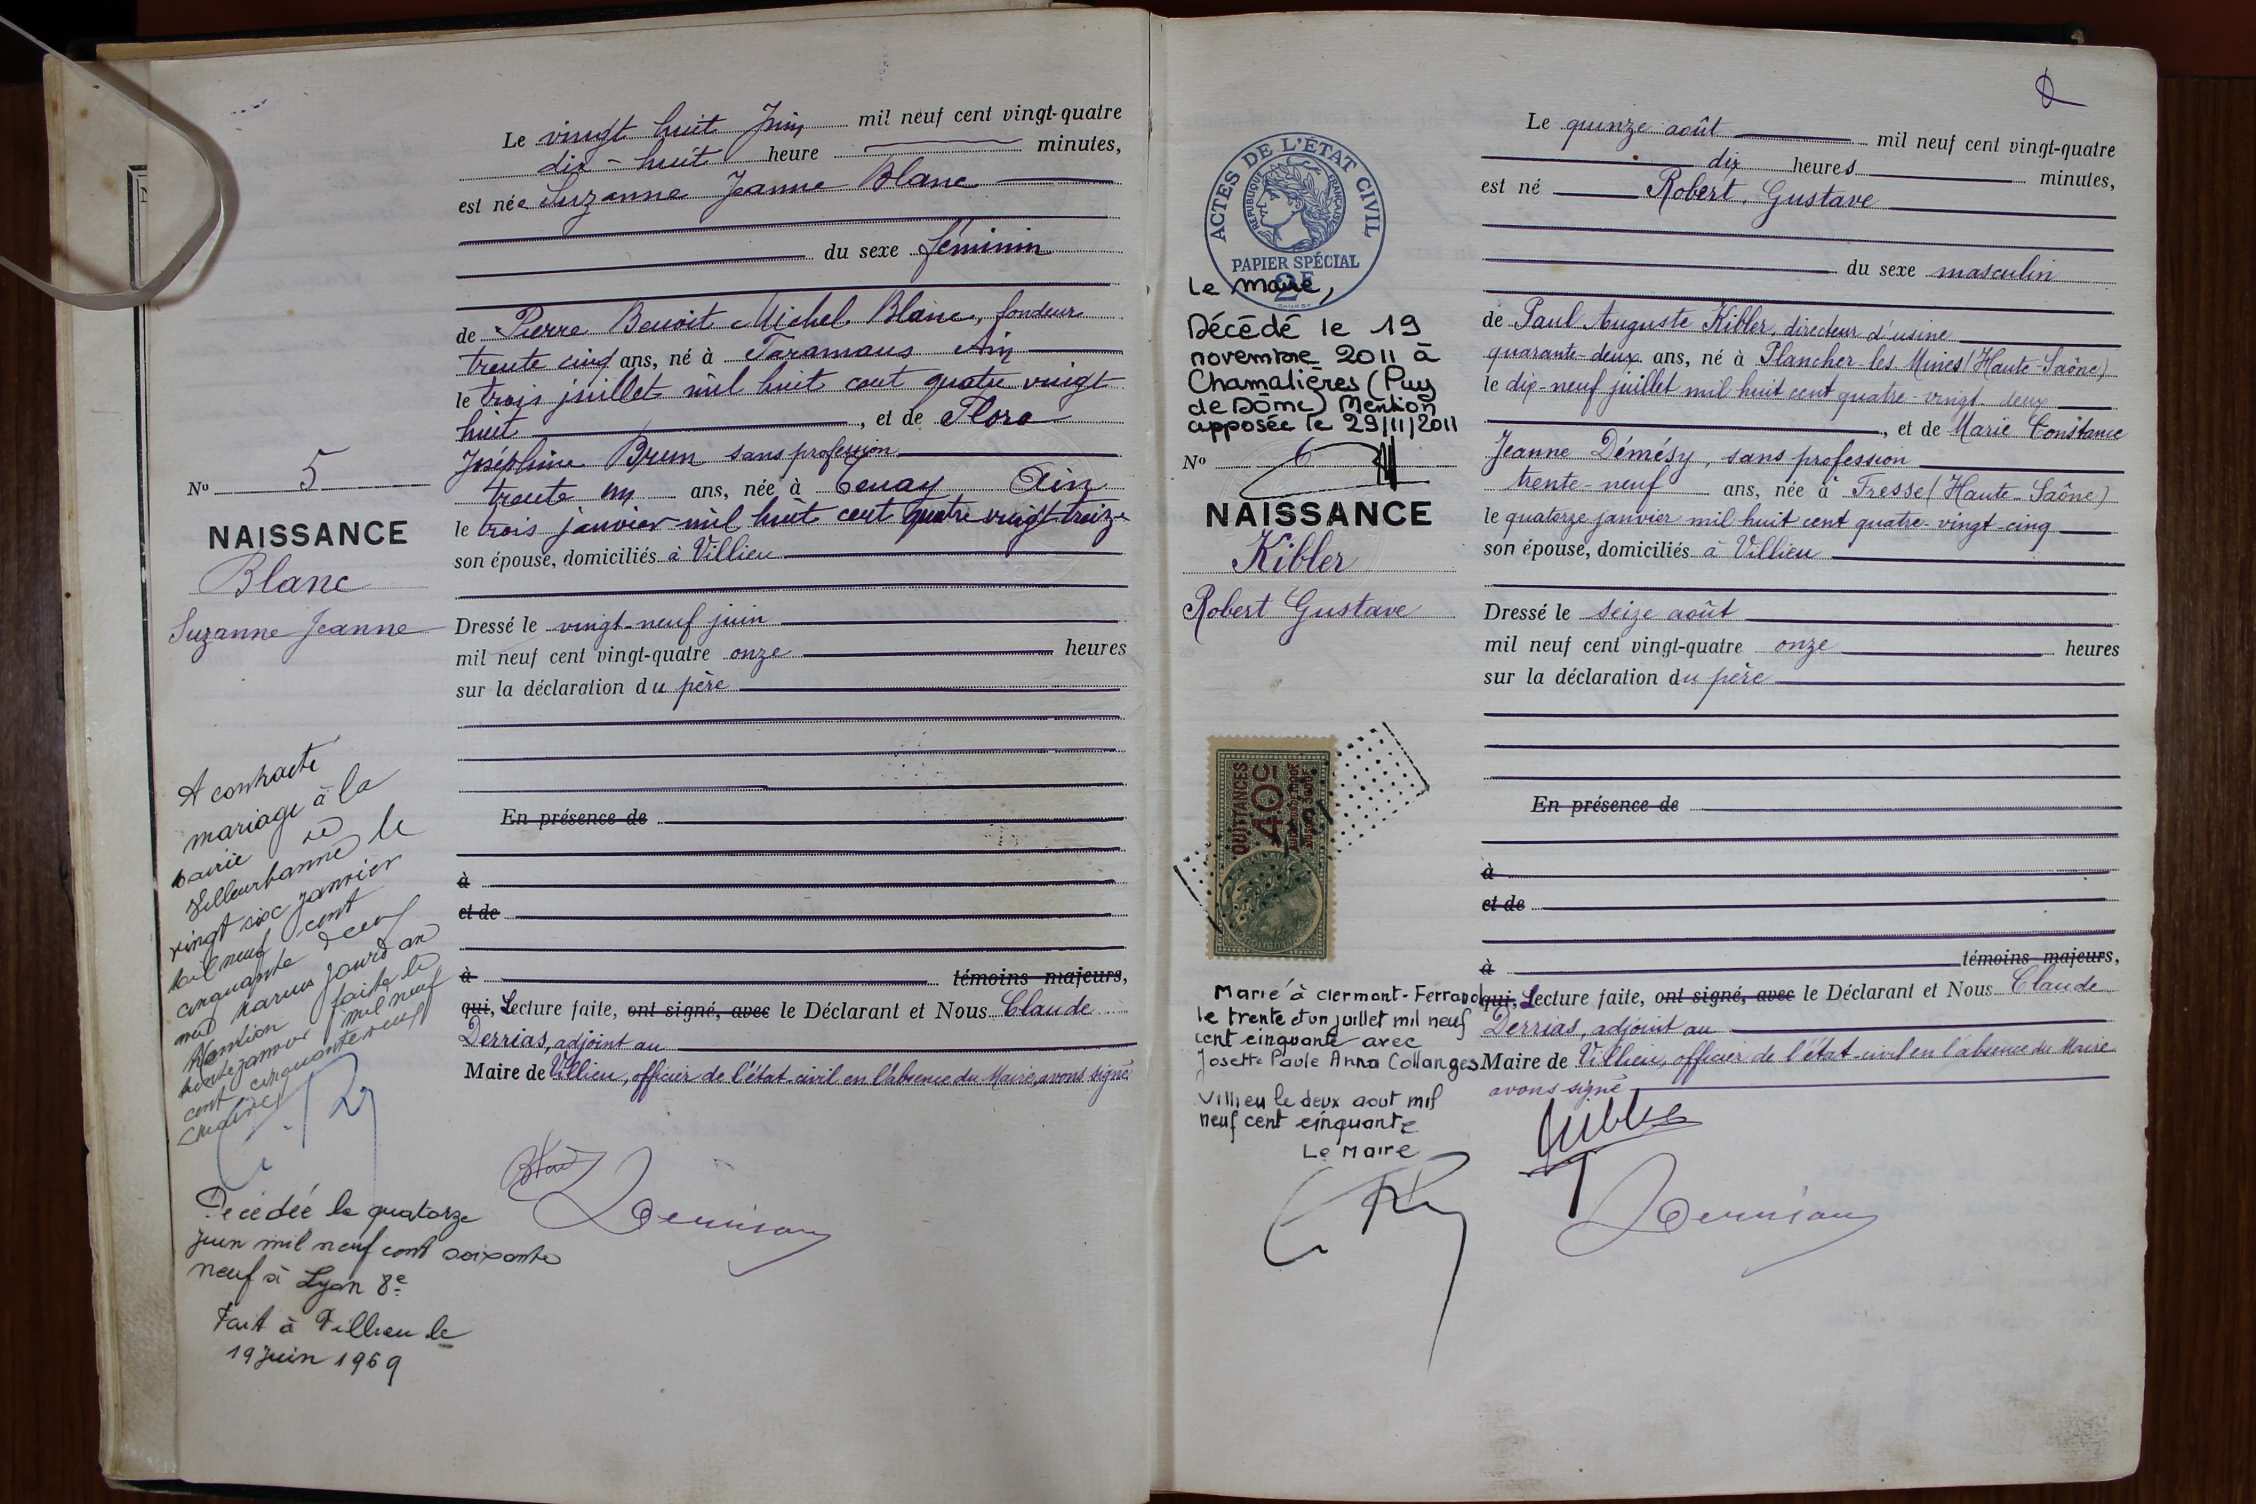 Le vingt huit Juin mil neuf cent vingt-quatre
dix-huit heure minutes,
est née Suzanne Jeanne Blanc
du sexe féminin
de Pierre Benoit Michel Blanc, fondeur
trente cinq ans, né à Ain
le trois juillet mil huit cent quatre vingt
huit, et de Flora
Joséphine Brun sans profession
trente un ans, née à Tenay Ain
le trois janvier mil huit cent quatre vingt treize
son épouse, domiciliés à Villieu
Dressé le vingt-neuf juin
mil neuf cent vingt-quatre onze heures
sur la déclaration du père
En présence de
à
et de
à témoins majeurs,
qui, Lecture faite, ont signé, avec le Déclarant et Nous Claude
Derrias, adjoint au
Maire de Villieu, officier de l'état-civil en l'absence du Maire, avons signé
No 5
NAISSANCE
Blanc
Suzanne Jeanne
A contracté
mariage à la
mairie de
Villeurbanne le
vingt six janvier
mil neuf cent
cinquante neuf
avec Marius Jourdan
Mention faite le
trente janvier mil neuf
cent cinquante neuf
Décédée le quatorze
juin mil neuf cent soixante
neuf à Lyon 8e
Fait à Villieu le
19 juin 1969
ACTES DE L'ÉTAT CIVIL
RÉPUBLIQUE FRANÇAISE
PAPIER SPÉCIAL
2F
Le Maire,
Décédé le 19
novembre 2011 à
Chamalières (Puy
de Dôme) Mention
apposée le 29/11/2011
No 6
NAISSANCE
Kibler
Robert Gustave
QUITTANCES
40c
Marié à Clermont-Ferrand
le trente et un juillet mil neuf
cent cinquante avec
Josette Paule Anna Collanges
Villieu le deux aout mil
neuf cent cinquante
Le Maire
Le quinze août mil neuf cent vingt-quatre
dix heures minutes,
est né Robert, Gustave
du sexe masculin
de Paul Auguste Kibler, directeur d'usine
quarante-deux ans, né à Plancher-les-Mines (Haute-Saône)
le dix-neuf juillet mil huit cent quatre-vingt-deux
, et de Marie Constance
Jeanne Démésy, sans profession
trente-neuf ans, née à Fresse (Haute-Saône)
le quatorze janvier mil huit cent quatre-vingt-cinq
son épouse, domiciliés à Villieu
Dressé le seize août
mil neuf cent vingt-quatre onze heures
sur la déclaration du père
En présence de
à
et de
à témoins majeurs,
qui, Lecture faite, ont signé, avec le Déclarant et Nous Claude
Derrias, adjoint au
Maire de Villieu, officier de l'état-civil en l'absence du Maire
avons signé